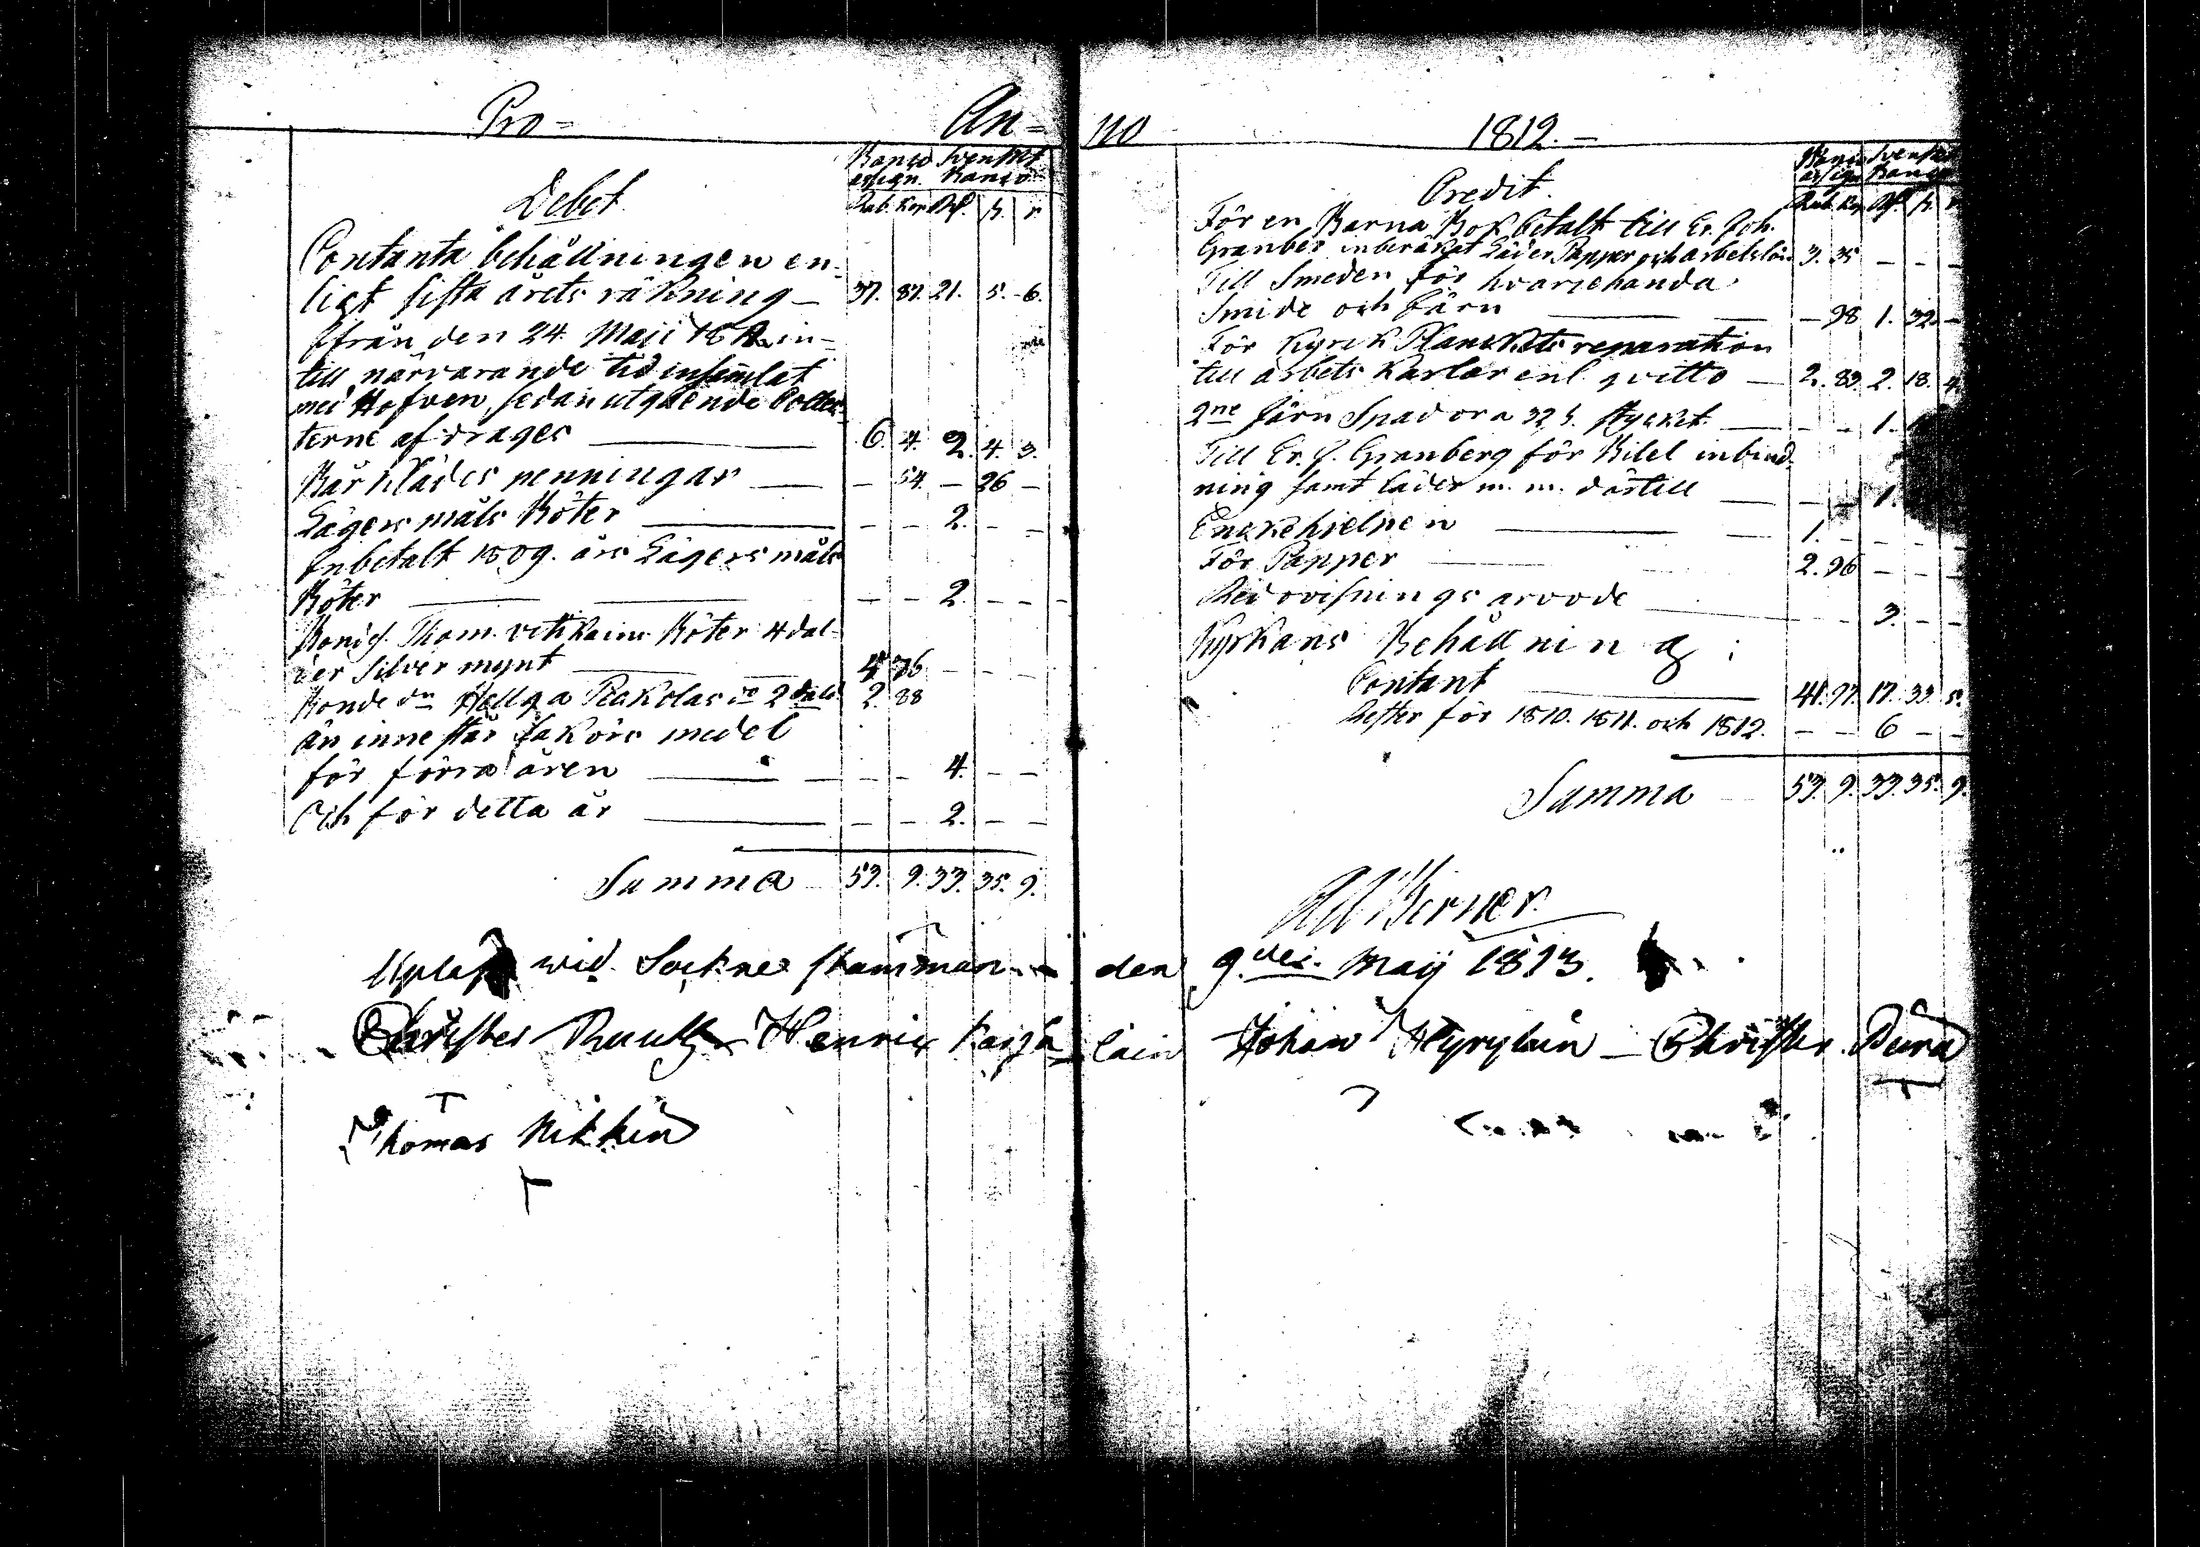 Pro = An =
Debet
Banco assign. Svenskt Banco
Rub. Kop. Rd. s. r
Contanta behållningen en-
ligt sista årets räkning — 37. 87. 21. 5. 6.
Ifrån den 24 Maji in-
till närvarande tid insamlat
med Hofven, sedan utgående
terne afdrages — 6. 4. 2. 4. 3.
Bårklädes penningar — – 54. – 26 –
Lägersmåls Böter — – – 2. – –
Inbetalt 1809. års Lägersmåls
Böter — – – 2. – –
Bond. Thom. Böter 4 dal-
ler Silver mynt — 4 76 – – –
Bonde dn Hellga 2 dal. 2. 88
än inne står sakörs medel
för förra åren — – – 4. – –
Och för detta år — – – 2. – –
Summa 53. 9. 33. 35. 9.
no 1812. –
Credit.
Banco assign Svenskt Banco
Rub. Kop Rd. s. r
För en Barna Bok betalt till Er. Joh.
Granber inberäknat Läder Papper och arbetslön 3. 35 – – –
Till Smeden för hvarjehanda
Smide och Järn — – 98 1. 32. –
För Kyrk Planckets reparation
till arbets Karlar enl. qvitto — 2. 83. 2. 18. 4.
2ne Järn Spador a 32 s. stycket. — – – 1.
Till Er. J. Granberg för Bibel inbind-
ning samt läder m. m. därtill — – – 1.
Enckehielpen — 1. – – – –
För Papper — 2. 96 – – –
Redovisnings arvode — – – 3. – –
Kyrkans Behållning :
Contant — 41. 97. 17. 33. 5.
Rester för 1810. 1811. och 1812. – – 6 – –
Summa 53. 9. 33. 35. 9.
Ad Berner.
Uplast wid Sockne stamman den 9des. Maij 1813.
Christer Ruuth Henrik Karjalain Johan Hyrylain – Christer Pura
Thomas Nikkin